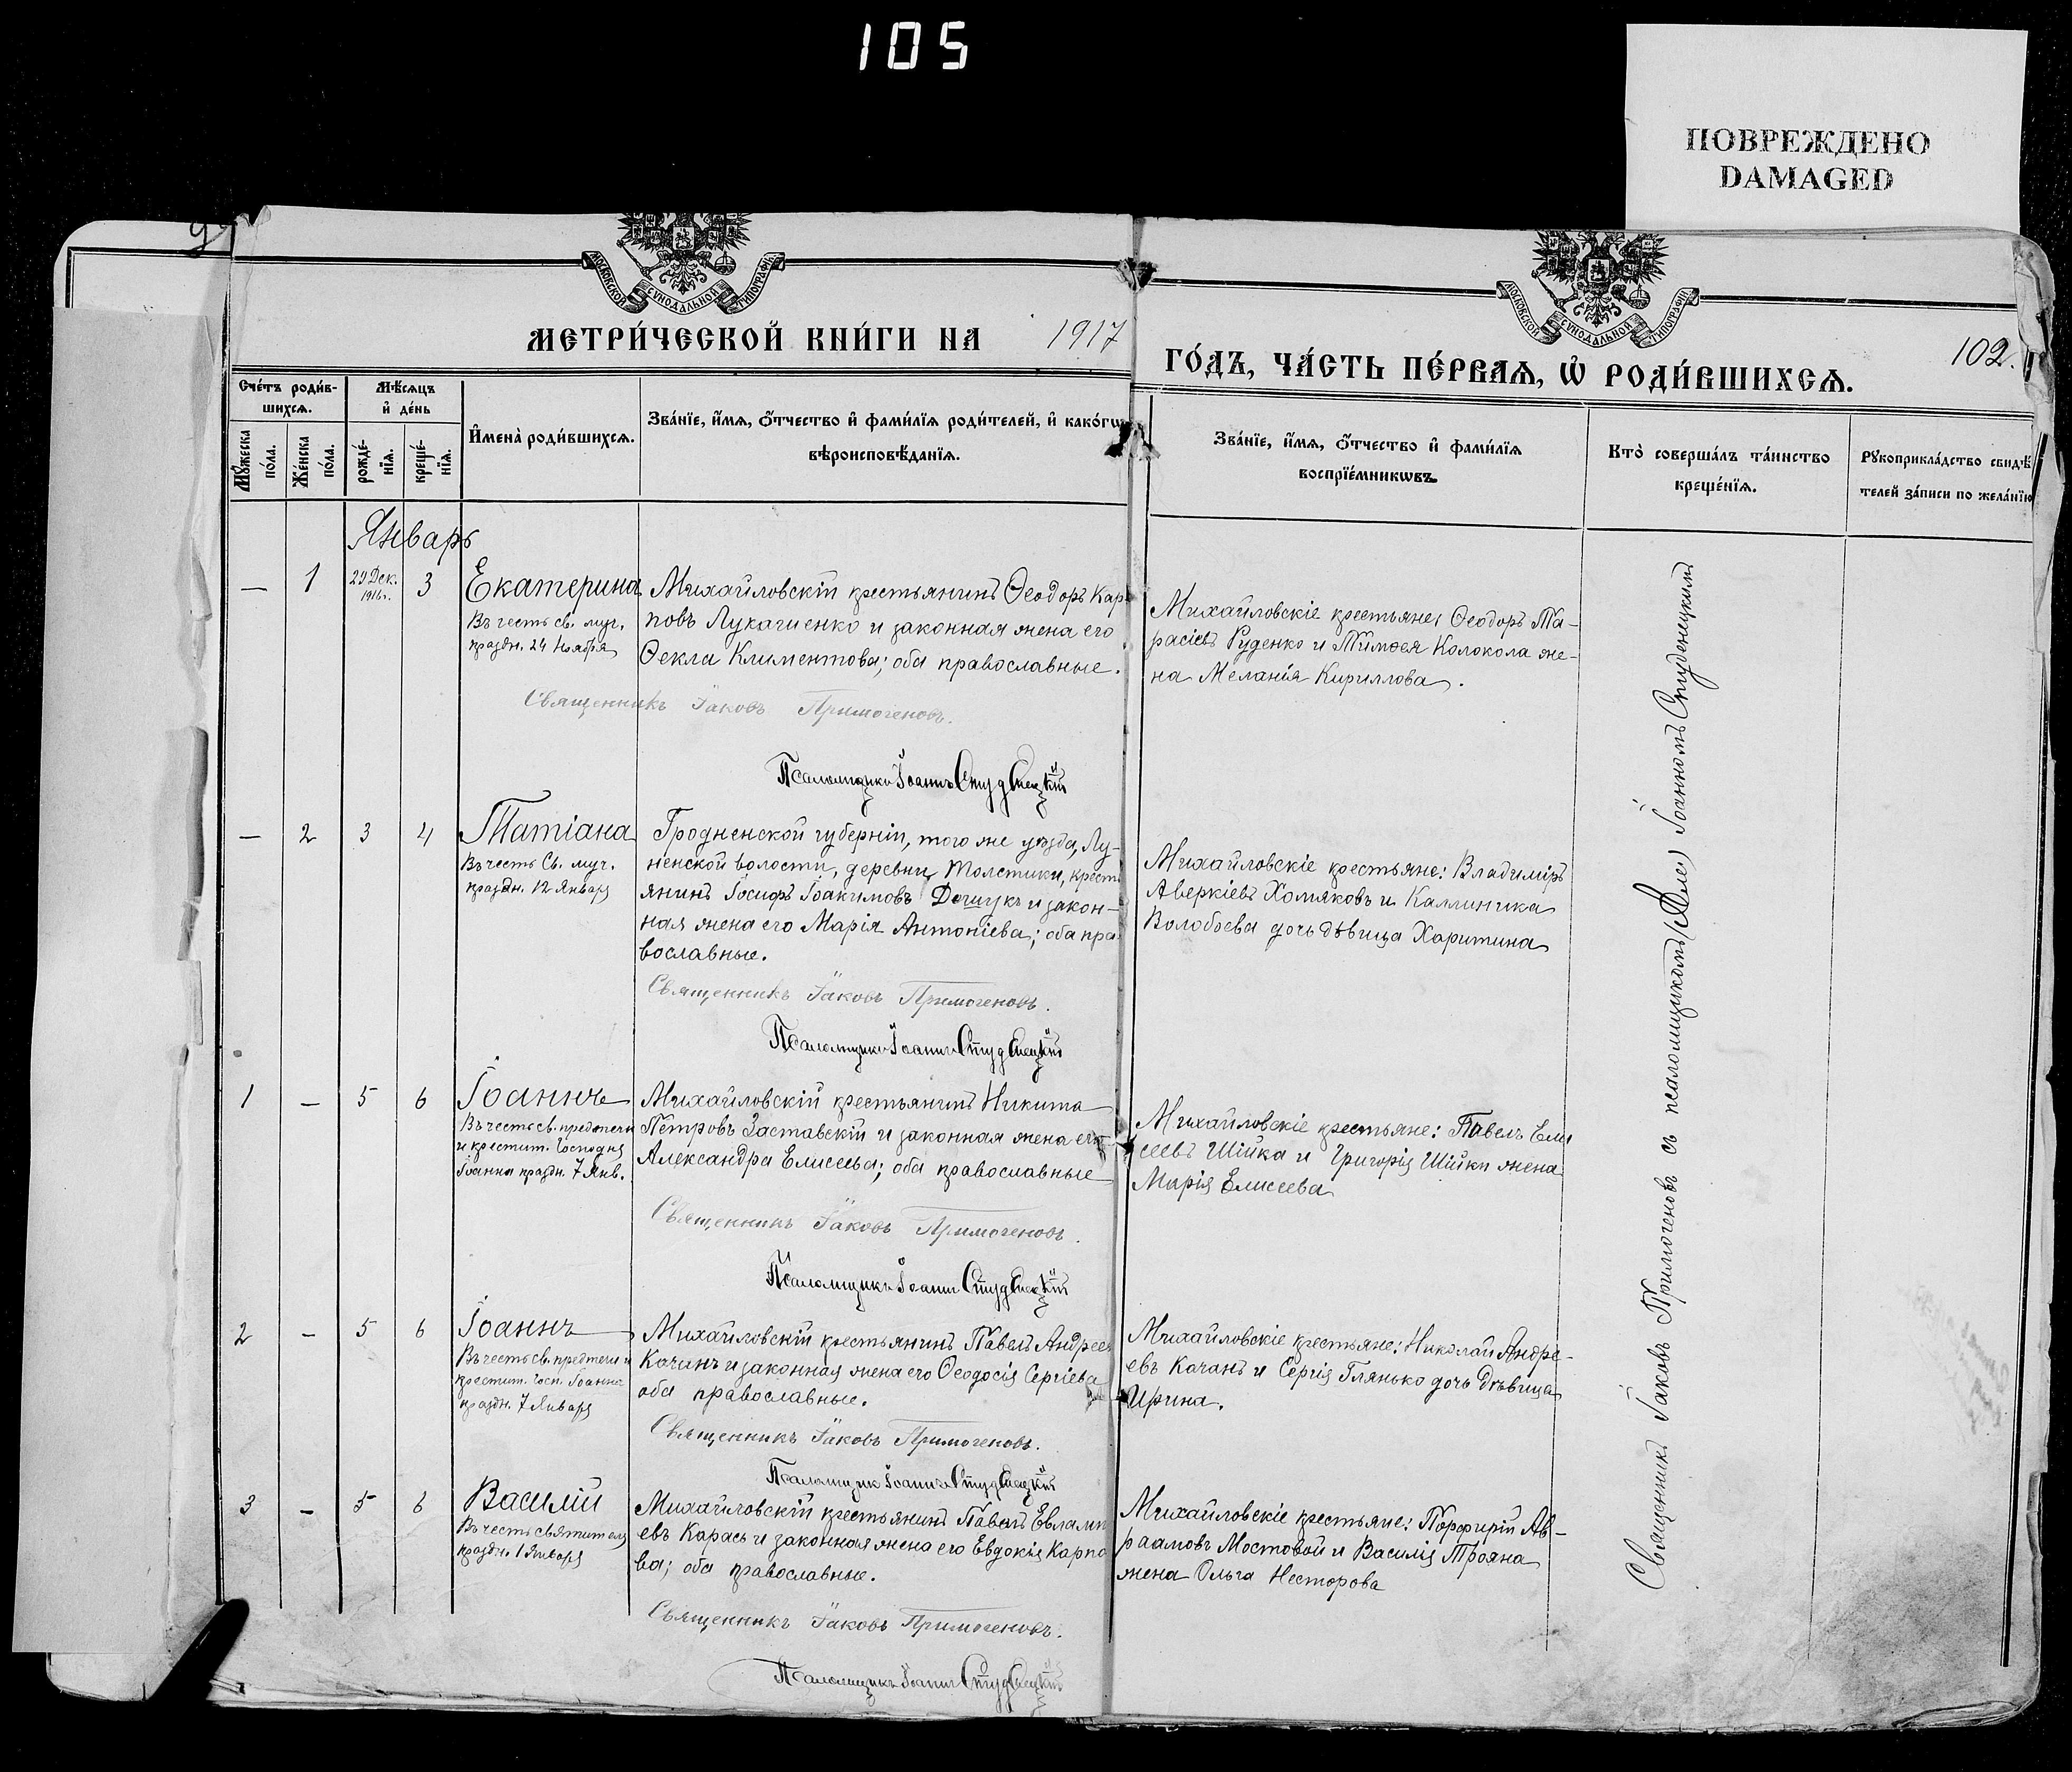 105
ПОВРЕЖДЕНО
DAMAGED
МОСКОВСКОЙ СѴНОДАЛЬНОЙ ТИПОГРАФІИ
МОСКОВСКОЙ СѴНОДАЛЬНОЙ ТИПОГРАФІИ
МЕТРИ́ЧЕСКОЙ КНИ́ГИ НА 1917
ГО́ДЪ, ЧА́СТЬ ПЕ́РВАѦ, Ѡ҆ РОДИ́ВШИХСѦ.
102.
Сче́тъ роди́в-
шихсѧ.
Мѣ́сѧцъ
и҆ де́нь
Мꙋ́жеска
по́ла.
Же́нска
по́ла.
рожде́-
нїѧ.
креще́-
нїѧ.
И҆мена̀ роди́вшихсѧ.
Зва́нїе, и҆́мѧ, ѻ҆́тчество и҆ фами́лїѧ роди́телей, и҆ како́гѡ
вѣроисповѣ́данїѧ.
Зва́нїе, и҆́мѧ, ѻ҆́тчество и҆ фами́лїѧ
воспрїе́мникѡвъ.
Кто̀ соверша́лъ та́инство
креще́нїѧ.
Рꙋкоприкла́дство свидѣ́
телей за́писи по жела́нїю
Январь
— 1 29 Дек. 1916 г. 3
Екатерина
Въ честь св. муч.
праздн. 24 Ноября
Михайловскій крестьянинъ Ѳеодоръ Кар
повъ Лукашенко и законная жена его
Ѳекла Климентова; оба православные.
Священникъ Іаковъ Примогеновъ.
Псаломщикъ Іоаннъ Студенецкій
Михайловскіе крестьяне: Ѳеодоръ Та-
расіевъ Руденко и Тимоѳея Колокола же-
на Меланія Кириллова.
— 2 3 4
Татіана
Въ честь Св. муч.
праздн. 12 Января
Гродненской губерніи, того же уѣзда, Лу-
ненской волости, деревни Толстики, кресть
янинъ Іосифъ Іоакимовъ Дошукъ и закон-
ная жена его Марія Антоніева; оба пра
вославные.
Священникъ Іаковъ Примогеновъ.
Псаломщикъ Іоаннъ Студенецкій
Михайловскіе крестьяне: Владиміръ
Аверкіевъ Хомяковъ и Каллиника
Волобоева дочь дѣвица Харитина
1 — 5 6
Іоаннъ
Въ честь св. предтечи
и крестит. Господня
Іоанна праздн. 7 Янв.
Михайловскій крестьянинъ Никита
Петровъ Заставскій и законная жена его
Александра Елисеева; оба православные
Священникъ Іаковъ Примогеновъ.
Псаломщикъ Іоаннъ Студенецкій
Михайловскіе крестьяне: Павелъ Ели
сеевъ Шійка и Григорія Шійки жена
Марія Елисеева
2 — 5 6
Іоаннъ
Въ честь св. предтечи и
крестит. Госп. Іоанна
праздн. 7 Января
Михайловскій крестьянинъ Павелъ Андреевъ
Качанъ и законная жена его Ѳеодосія Сергіева
оба православные.
Священникъ Іаковъ Примогеновъ.
Псаломщикъ Іоаннъ Студенецкій
Михайловскіе крестьяне: Николай Андре-
евъ Качанъ и Сергія Глянько дочь дѣвица
Ирина.
3 — 5 6
Василій
Въ честь святителя
праздн. 1 Января
Михайловскій крестьянинъ Павелъ Евламп
евъ Карась и законная жена его Евдокія Карпо
ва; оба православные.
Священникъ Іаковъ Примогеновъ.
Псаломщикъ Іоаннъ Студенецкій
Михайловскіе крестьяне: Порфирій Ав-
раамовъ Мостовой и Василія Трояна
жена Ольга Несторова
Священникъ Іаковъ Примогеновъ съ псаломщикомъ Іоанномъ Студенецкимъ